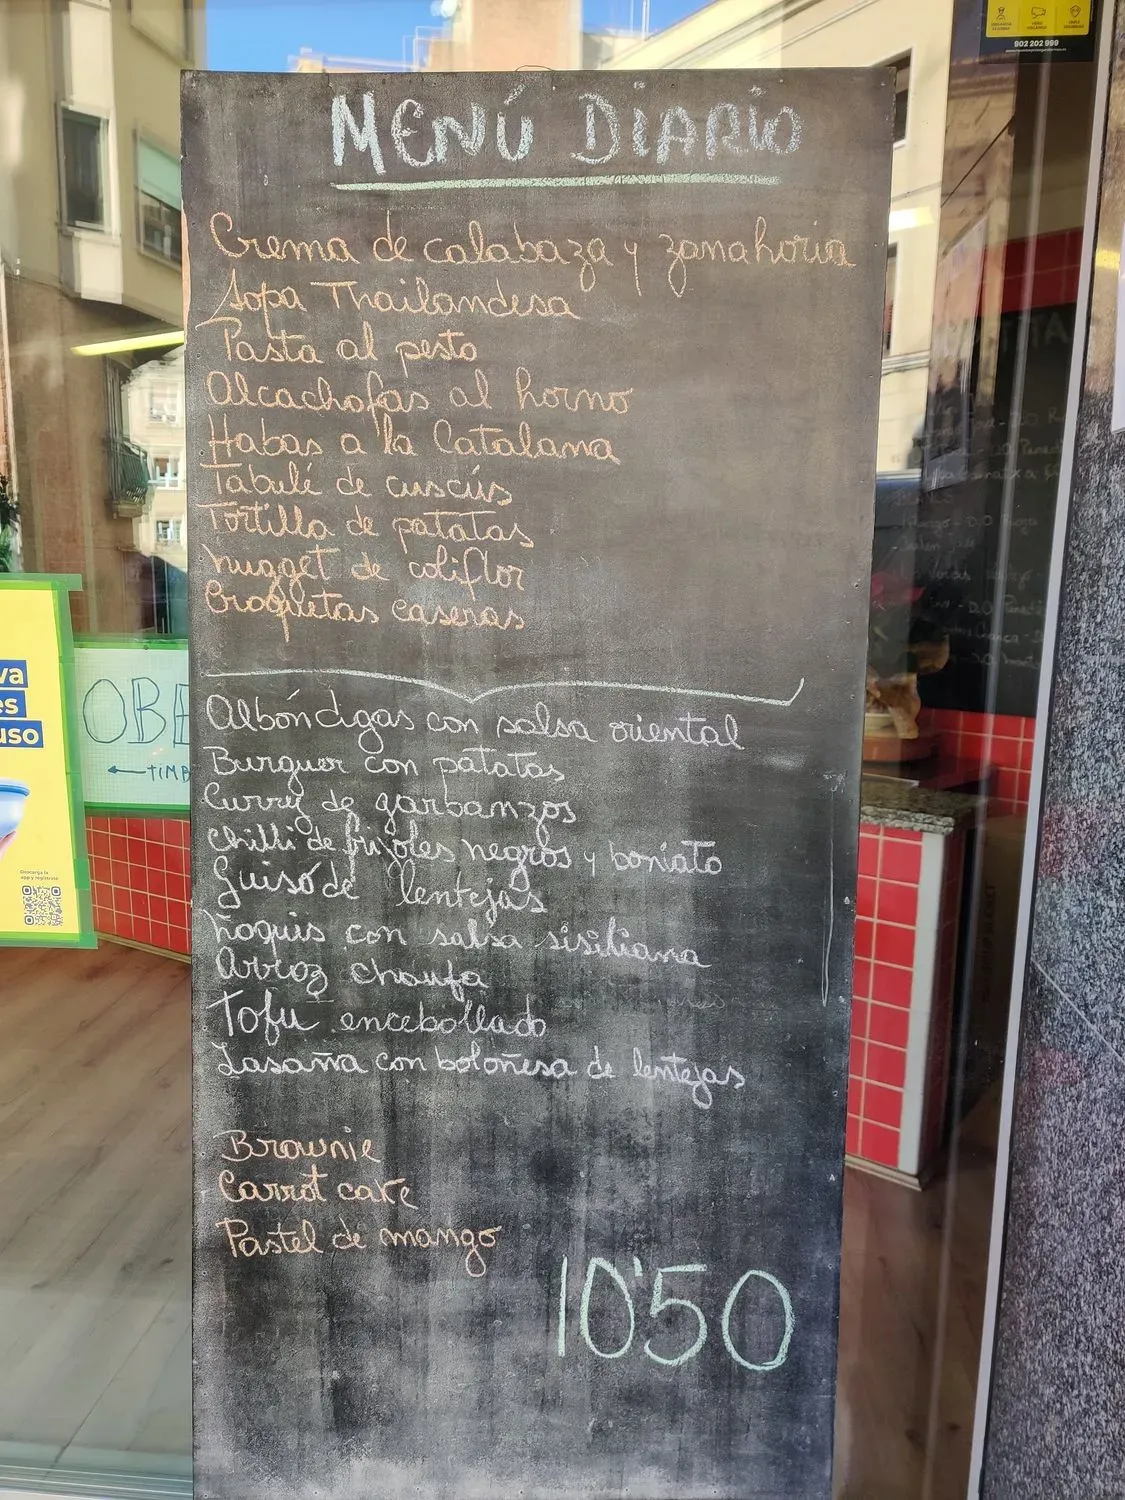 MENÚ DIARIO
Crema de calabaza y zanahoria
Sopa Thailandesa
Pasta al pesto
Alcachofas al horno
Habas a la Catalana
Tabulé de cuscús
Tortilla de patatas
Nugget de coliflor
Croquetas caseras
Albóndigas con salsa oriental
Burguer con patatas
Curry de garbanzos
Chilli de frijoles negros y boniato
Guiso de lentejas
Ñoquis con salsa sisiliana
Arroz chaufa
Tofu encebollado
Lasaña con boloñesa de lentejas
Brownie
Carrot cake
Pastel de mango
10'50
902 202 999
va
es
uso
Descarga la
app y regístrate
OBE
←TIMB